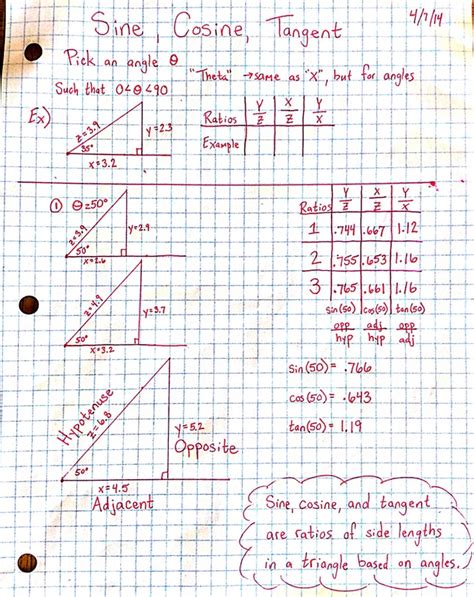 4/7/14
Sine, Cosine, Tangent
Pick an angle θ
"Theta" → same as "X", but for angles
Such that 0<θ<90
Ex)
z=3.9
y=2.3
35°
x=3.2
Ratios Y/Z X/Z Y/X
Example
① θ=50°
z=3.9
y=2.9
50°
x=2.6
z=4.9
y=3.7
50°
x=3.2
Hypotenuse
z=6.8
y=5.2
Opposite
50°
x=4.5
Adjacent
Ratios Y/Z X/Z Y/X
1 .744 .667 1.12
2 .755 .653 1.16
3 .765 .661 1.16
sin(50) cos(50) tan(50)
opp/hyp adj/hyp opp/adj
sin(50) = .766
cos(50) = .643
tan(50) = 1.19
Sine, cosine, and tangent
are ratios of side lengths
in a triangle based on angles.